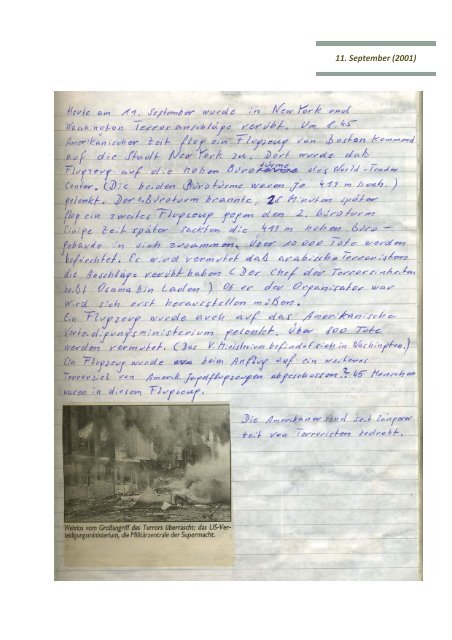 11. September (2001)
Heute am 11. September wurde in NewYork und
Washington Terroranschläge verübt. Um 8.45
Amerikanischer Zeit flog ein Flugzeug von Boston kommend
auf die Stadt NewYork zu. Dort wurde das
Flugzeug auf die hohen Bürotürme des World-Trader
Center. (Die beiden Bürotürme waren je 411 m hoch.)
gelenkt. Der 1. Büroturm brannte, 25 Minuten später
flog ein zweites Flugzeug gegen den 2. Büroturm
Einige Zeit später sackten die 411 m hohen Büro-
gebäude in sich zusammen. Über 10 000 Tote werden
befürchtet. Es wird vermutet daß arabische Terroristen
die Anschläge verübt haben (Der Chef der Terroreinheiten
heißt Osama bin Laden) Ob er der Organisator war
wird sich erst herausstellen müßen.
Ein Flugzeug wurde auch auf das Amerikanische
Verteidigungsministerium gelenkt. Über 800 Tote
werden vermutet. (Das V. Ministerium befindet sich in Washington.)
Ein Flugzeug wurde beim Anflug auf ein weiteres
Terrorziel von Amerik. Jagdflugzeugen abgeschossen.? 45 Menschen
waren in diesem Flugzeug.
Die Amerikaner sind seit längerer
Zeit von Terroristen bedroht.
Wehrlos vom Großangriff des Terrors überrascht: das US-Ver-
teidigungsministerium, die Militärzentrale der Supermacht.